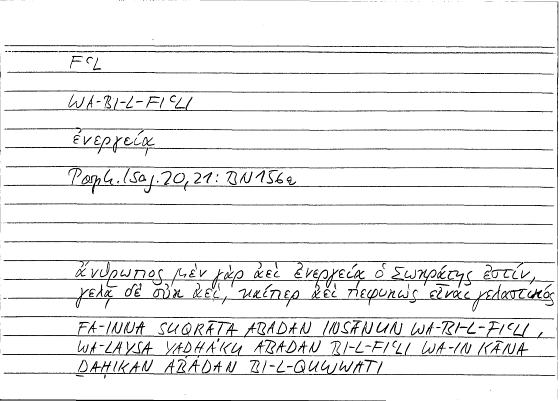 FᶜL
WA-BI-L-FIᶜLI
ἐνεργείᾳ
Porph. Isag. 20, 21: BN 156a
ἄνθρωπος μὲν γὰρ ἀεὶ ἐνεργείᾳ ὁ Σωκράτης ἐστίν,
γελᾷ δὲ οὐκ ἀεί, καίπερ ἀεὶ πεφυκὼς εἶναι γελαστικός
FA-INNA SUQRĀTA ABADAN INSĀNUN WA-BI-L-FIᶜLI,
WA-LAYSA YAḌḤAKU ABADAN BI-L-FIᶜLI WA-IN KĀNA
ḌAḤIKAN ABADAN BI-L-QUWWATI